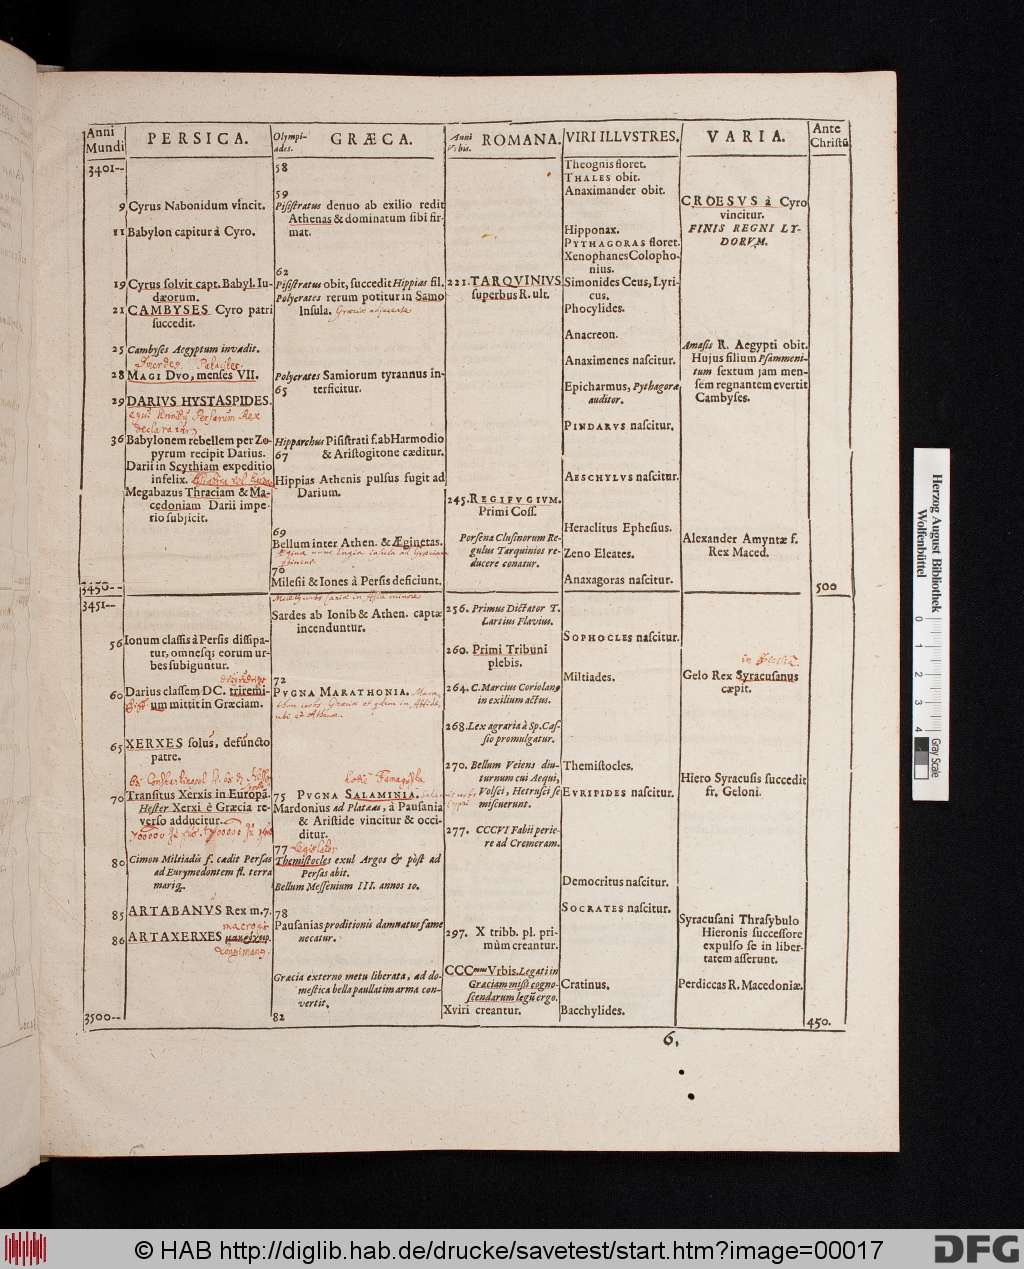 Anni Mundi
PERSICA.
Olympi-
ades.
GRÆCA.
Anni
Vrbis.
ROMANA.
VIRI ILLVSTRES.
VARIA.
Ante
Christū
3401--
9 Cyrus Nabonidum vincit.
11 Babylon capitur à Cyro.
19 Cyrus solvit capt. Babyl. Iu-
dæorum.
21 CAMBYSES Cyro patri
succedit.
25 Cambyses Aegyptum invadit.
28 MAGI DVO, menses VII.
29 DARIVS HYSTASPIDES.
36 Babylonem rebellem per Zo-
pyrum recipit Darius.
Darii in Scythiam expeditio
infelix.
Megabazus Thraciam & Ma-
cedoniam Darii impe-
rio subjicit.
3450--
58
59
Pisistratus denuo ab exilio redit
Athenas & dominatum sibi fir-
mat.
62
Pisistratus obit, succedit Hippias fil.
Polycrates rerum potitur in Samo
Insula.
Polycrates Samiorum tyrannus in-
65 terficitur.
Hipparchus Pisistrati f. ab Harmodio
67 & Aristogitone cæditur.
Hippias Athenis pulsus fugit ad
Darium.
69
Bellum inter Athen. & Æginetas.
70
Milesii & Iones à Persis deficiunt.
221. TARQVINIVS
superbus R. ult.
245. REGIFVGIVM.
Primi Coss.
Porsena Clusinorum Re-
gulus Tarquinios re-
ducere conatur.
Theognis floret.
THALES obit.
Anaximander obit.
Hipponax.
PYTHAGORAS floret.
Xenophanes Colopho-
nius.
Simonides Ceus, Lyri-
cus.
Phocylides.
Anacreon.
Anaximenes nascitur.
Epicharmus, Pythagoræ
auditor.
PINDARVS nascitur.
AESCHYLVS nascitur.
Heraclitus Ephesius.
Zeno Eleates.
Anaxagoras nascitur.
CROESVS à Cyro
vincitur.
FINIS REGNI LY-
DORVM.
Amasis R. Aegypti obit.
Hujus filium Psammeni-
tum sextum jam men-
sem regnantem evertit
Cambyses.
Alexander Amyntæ f.
Rex Maced.
500
3451--
56 Ionum classis à Persis dissipa-
tur, omnesq; eorum ur-
bes subiguntur.
60 Darius classem DC. triremi-
um mittit in Græciam.
65 XERXES solus, defuncto
patre.
70 Transitus Xerxis in Europā.
Hester Xerxi è Græcia re-
verso adducitur.
80 Cimon Miltiadis f. cædit Persas
ad Eurymedontem fl. terra
mariq;
85 ARTABANVS Rex m. 7.
86 ARTAXERXES μακρόχειρ.
3500--
Sardes ab Ionib & Athen. captæ
incenduntur.
72
PVGNA MARATHONIA.
75 PVGNA SALAMINIA.
Mardonius ad Platæas, à Pausania
& Aristide vincitur & occi-
ditur.
77
Themistocles exul Argos & pòst ad
Persas abit.
Bellum Messenium III. annos 10.
78
Pausanias proditionis damnatus fame
necatur.
Græcia externo metu liberata, ad do-
mestica bella paullatim arma con-
vertit.
82
256. Primus Dictator T.
Lartius Flavius.
260. Primi Tribuni
plebis.
264. C. Marcius Coriolanꝰ
in exilium actus.
268. Lex agraria à Sp. Cas-
sio promulgatur.
270. Bellum Veiens diu-
turnum cui Aequi,
Volsci, Hetrusci se
miscuerunt.
277. CCCVI Fabii perie-
re ad Cremeram.
297. X tribb. pl. pri-
mùm creantur.
CCC Vrbis. Legati in
Græciam missi cogno-
scendarum legū ergo.
Xviri creantur.
SOPHOCLES nascitur.
Miltiades.
Themistocles.
EVRIPIDES nascitur.
Democritus nascitur.
SOCRATES nascitur.
Cratinus.
Bacchylides.
Gelo Rex Syracusanus
cæpit.
Hiero Syracusis succedit
fr. Geloni.
Syracusani Thrasybulo
Hieronis successore
expulso se in liber-
tatem asserunt.
Perdiccas R. Macedoniæ.
450.
6.
Herzog August Bibliothek
Wolfenbüttel
0 1 2 3 4
Gray Scale
© HAB http://diglib.hab.de/drucke/savetest/start.htm?image=00017
DFG